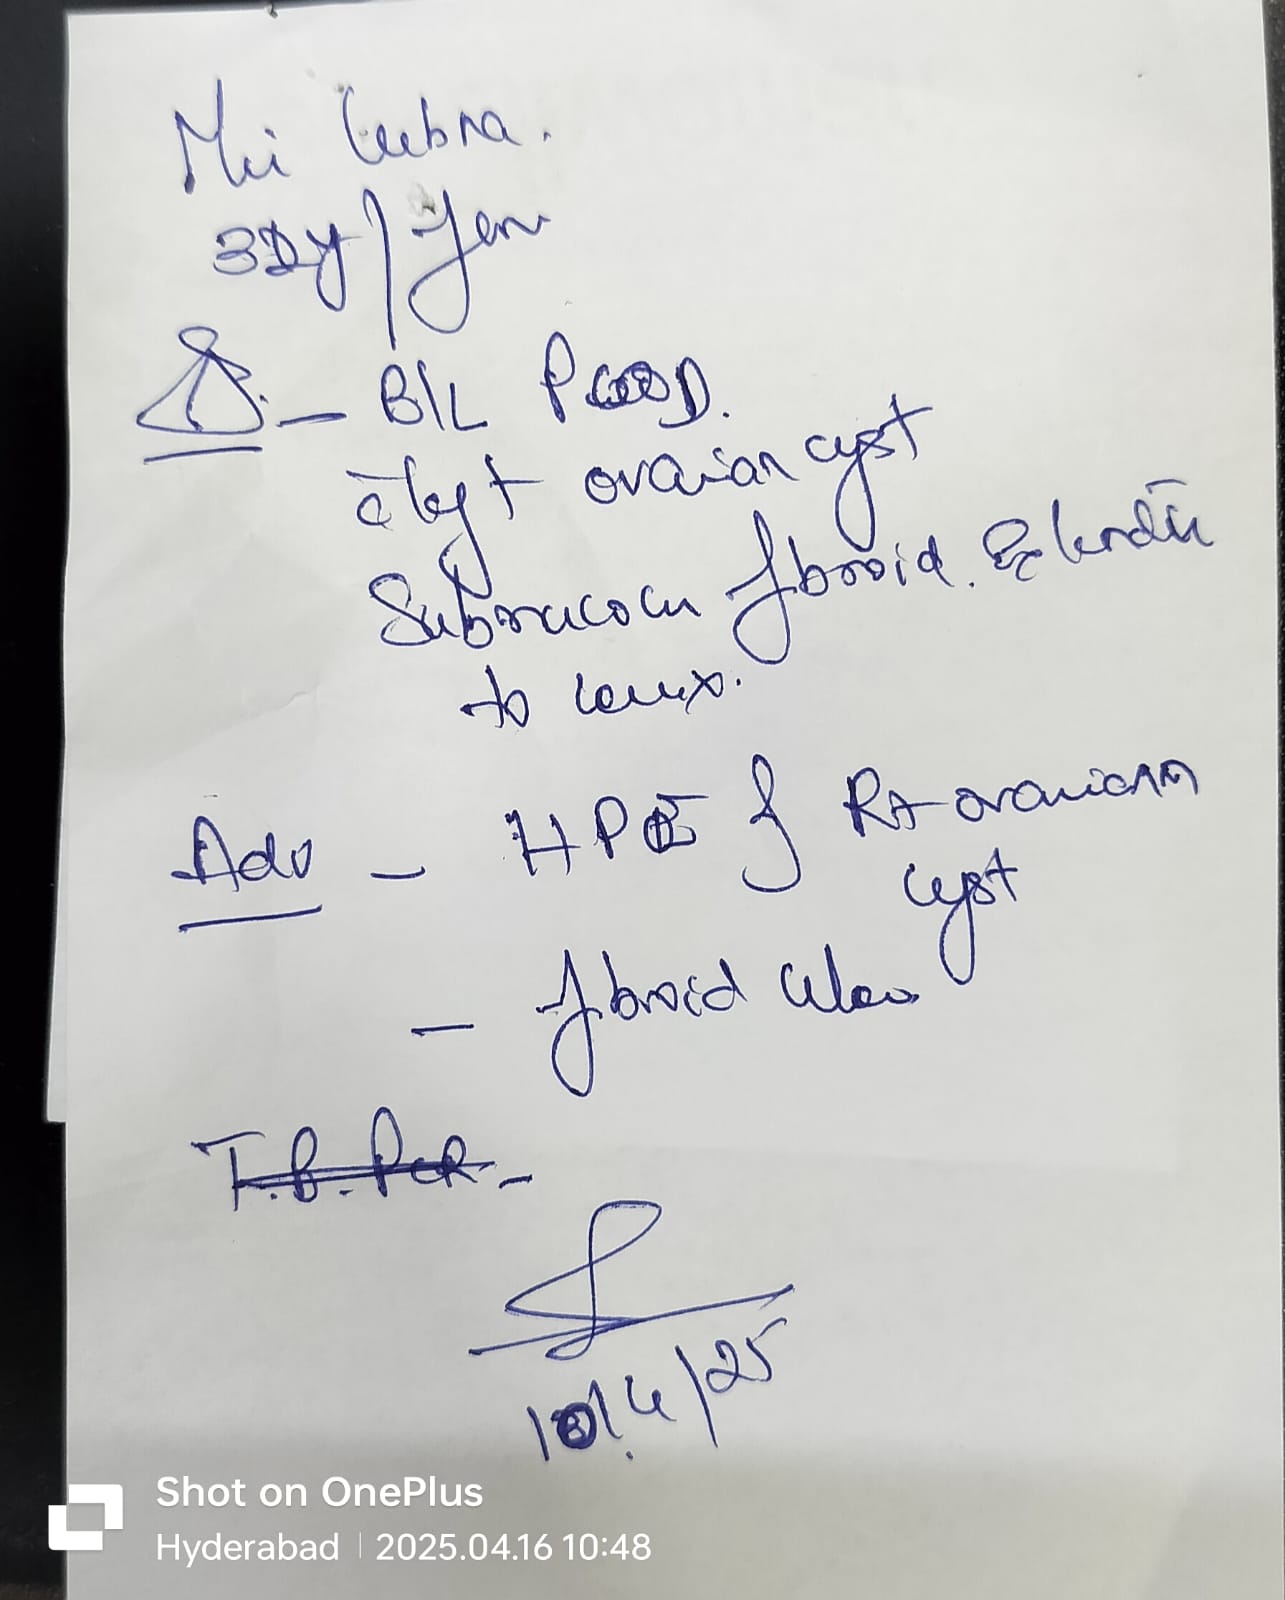 Kubra.
B/L PCOD.
c̄ left ovarian cyst
Submucous fibroid. Extending
to cervix.
Adv - HPE of Rt ovarian
cyst
- fibroid
T.B. PCR -
/4/25
Shot on OnePlus
Hyderabad | 2025.04.16 10:48